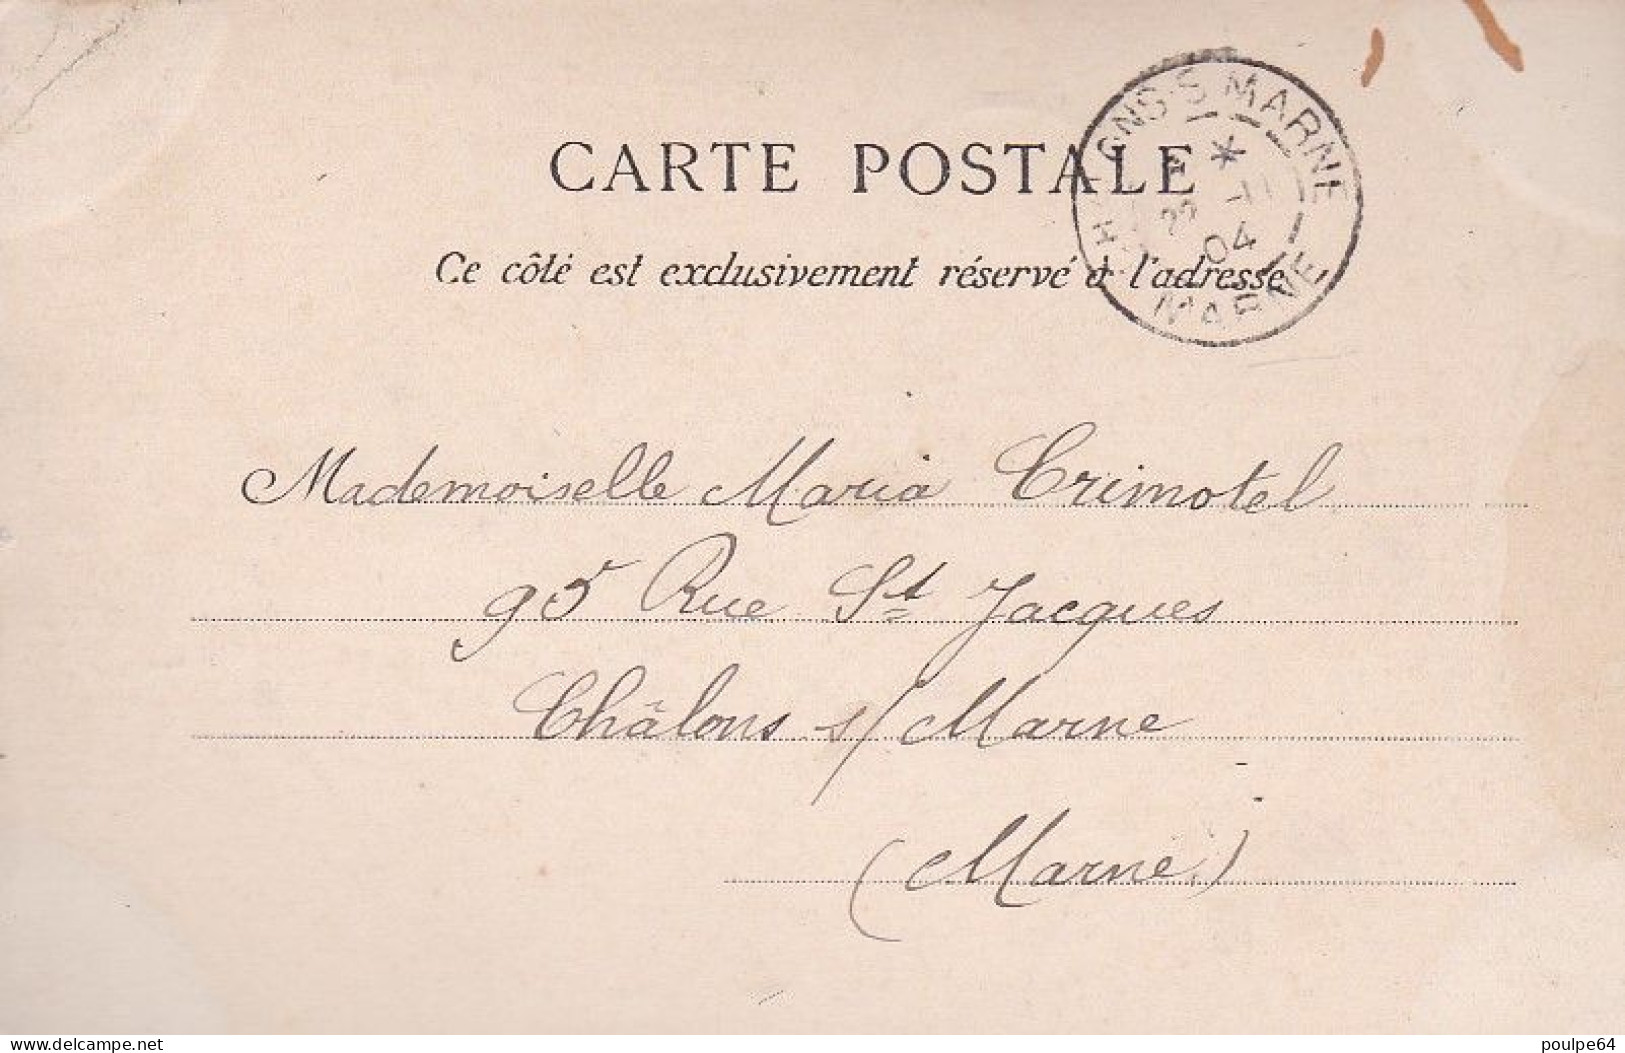 CARTE POSTALE
Ce côté est exclusivement réservé à l'adresse
CHALONS-S-MARNE
22
04
MARNE
Mademoiselle Maria Crimotel
95 Rue St Jacques
Châlons s/Marne
(Marne)
delcampe.net
poulpe64